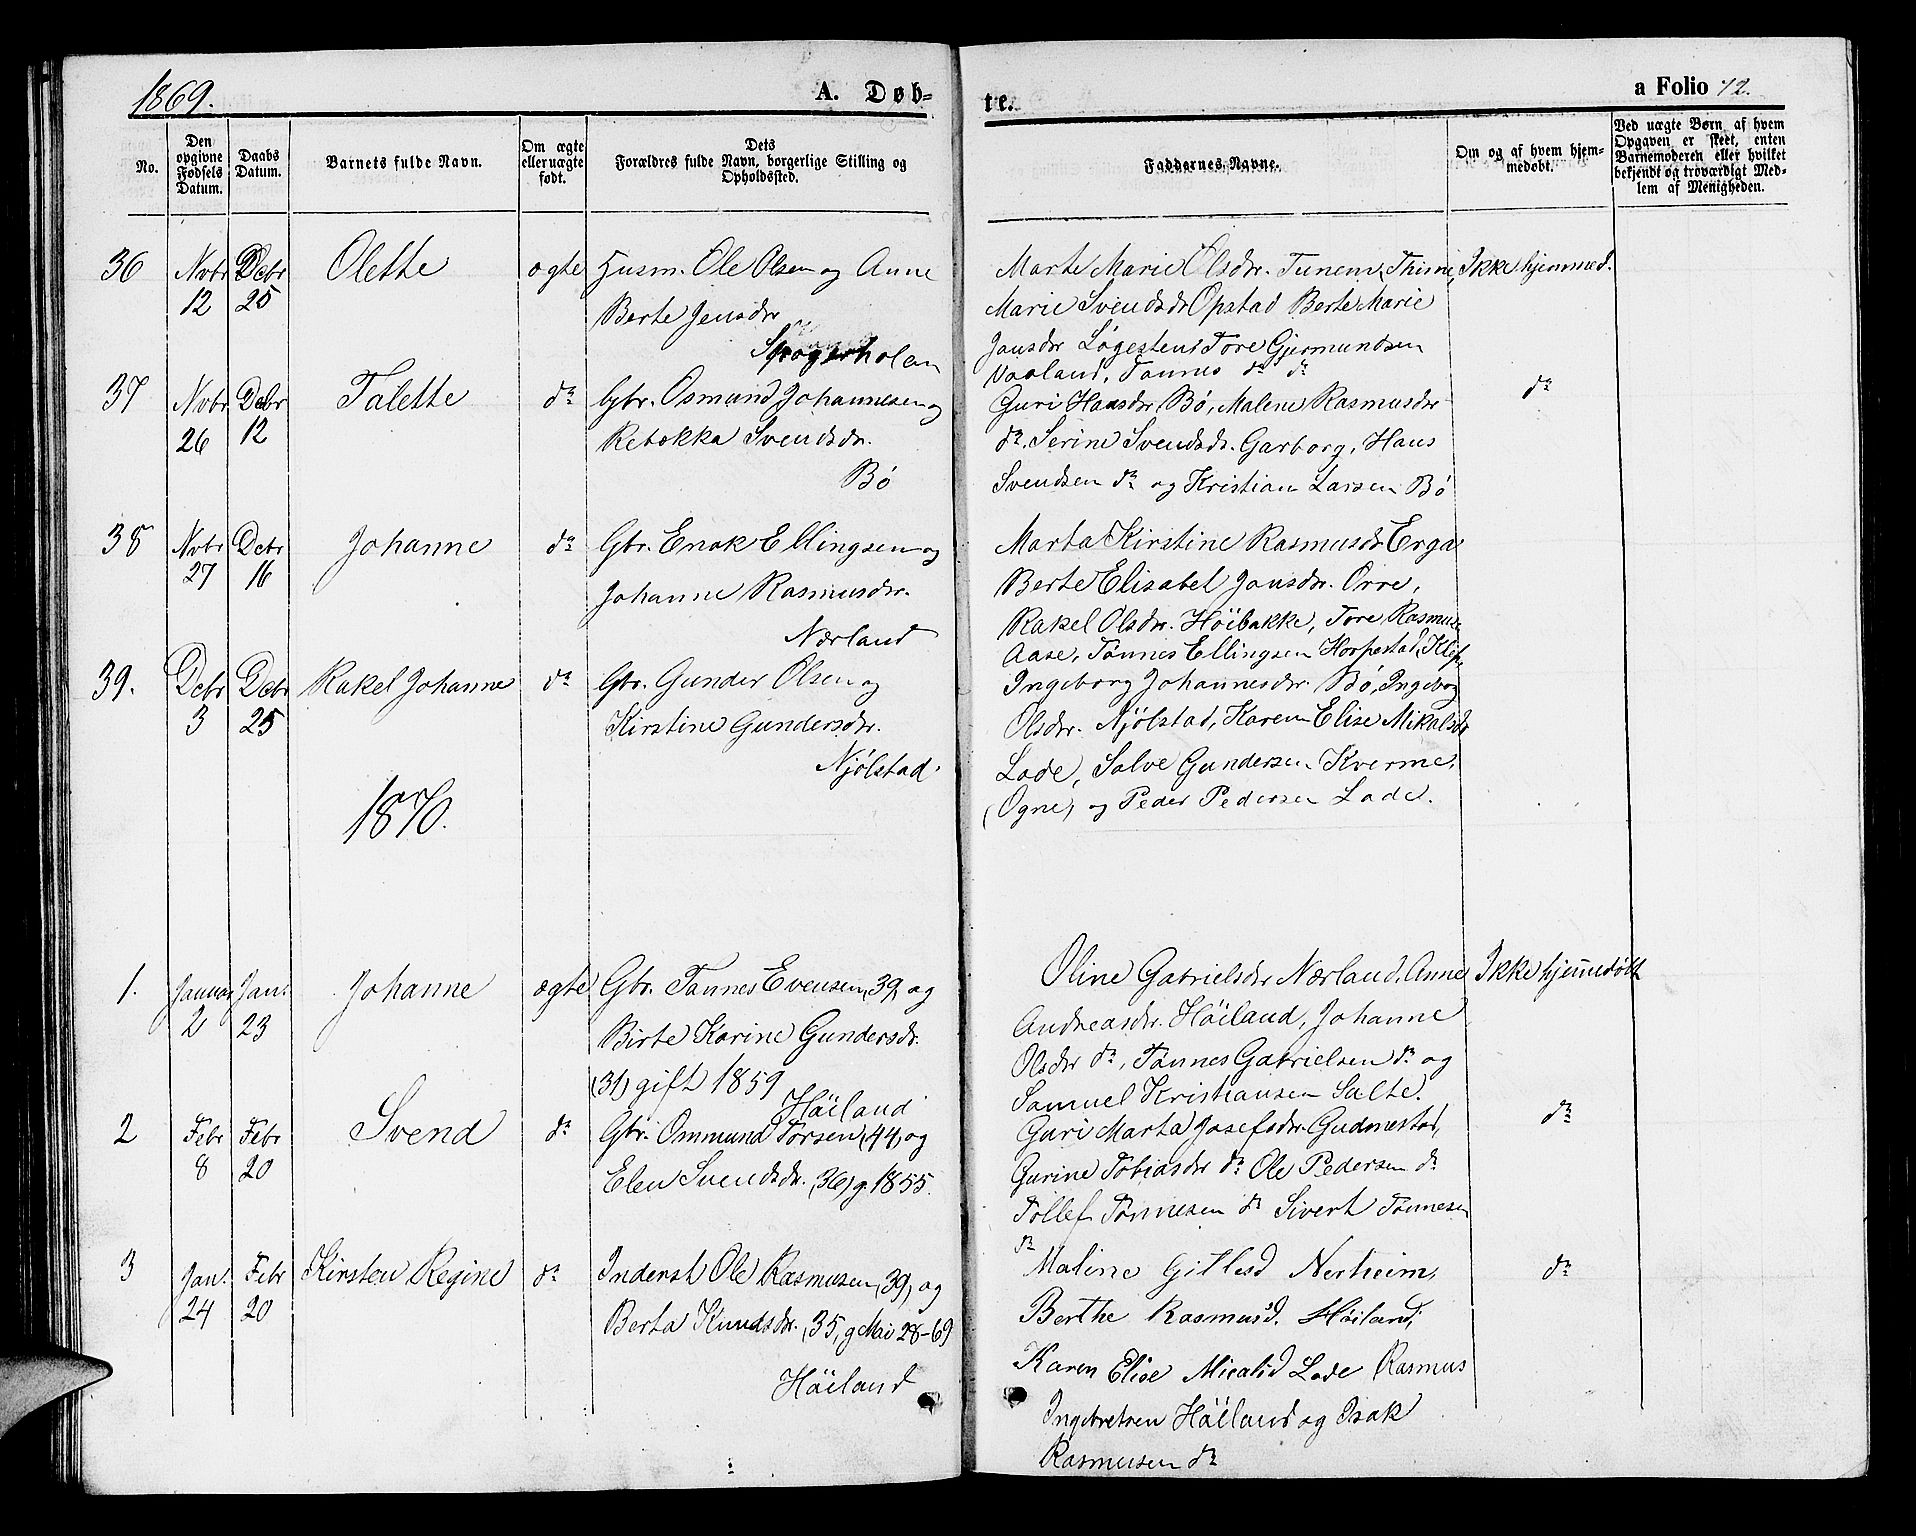 1869.
A. Døb-
te.
a Folio 12.
No.
Den opgivne Fødsels Datum.
Daabs Datum.
Barnets fulde Navn.
Om ægte eller uægte født.
Dets Forældres fulde Navn, borgerlige Stilling og Opholdssted.
Faddernes Navne.
Om og af hvem hjemmedøbt.
Ved uægte Børn af hvem Opgaven er skeet, enten Barnemoderen eller hvilket bekjendt og troværdigt Medlem af Menigheden.
36 Novbr 12 Dcbr 25 Olette ægte Husm. Ole Olsen og Anne
Berte Jensdr
Marte Marie Olsdr. Tunem, Thime, Ikke hjemmed.
Marie Svendsdr Opstad Berte Marie
Jansdr Løgesten Tore Gjermundsen
Vaaland, Tønnes do do
37 Novbr 26 Decbr 12 Talette do Gbr. Osmund Johannesen og
Rebekka Svendsdr.
Bø
Guri Hansdr Bø, Malene Rasmusdr do
do. Serine Svendsdr. Garborg, Hans
Svendsen do og Kristian Larsen Bø
38 Novbr 27 Dcbr 16 Johanne do Gbr. Enok Ellingsen og
Johanne Rasmusdr.
Nærland
Marta Kirstine Rasmusdr Erga
Berte Elisabet Jonsdr. Orre,
Rakel Olsdr. Höibakke, Tore Rasmusen
Aase, Tønnes Ellingsen Horpestad, Klep,
39. Dcbr 3 Dcbr 25 Rakel Johanne do Gbr. Gunder Olsen og
Kirstine Gundersdr.
Njølstad.
Ingeborg Johannesdr. Bø, Ingeborg
Olsdr. Njølstad, Karen Elise Mikalsdr
Lode, Salve Gundersen Kverme,
(Ogne, og Peder Pedersen Lode.
1870.
1. Januar 2 Jan. 23 Johanne ægte Gbr. Tønnes Evensen (39) og
Birte Karine Gundersdr.
(31) gift 1859
Höiland
Oline Gabrielsdr Nærland, Anne Ikke hjemmedøbt
Andreasdr. Höiland, Johanne
Olsdr do, Tønnes Gabrielsen do og
Samuel Kristiansen Salte.
2 Febr 8 Febr 20 Svend do Gbr. Ommund Torsen (44) og
Elen Svendsdr. (36) g. 1855.
Guri Marta Josefsdr. Gudmestad, do
Gurine Tobiasdr do Ole Pedersen do
Tollef Tønnesen do Sivert Tønnesen
do
3 Jan. 24 Febr 20 Kirsten Regine do Inderst Ole Rasmusen (39) og
Berta Knudsdr. (35, g Mai 28-69
Höiland
Maline Gitlesd Nerheim, do
Berthe Rasmusd. Höiland,
Karen Elise Micalsd Lode Rasmus
Ingebretsen Höiland og Isak
Rasmusen do